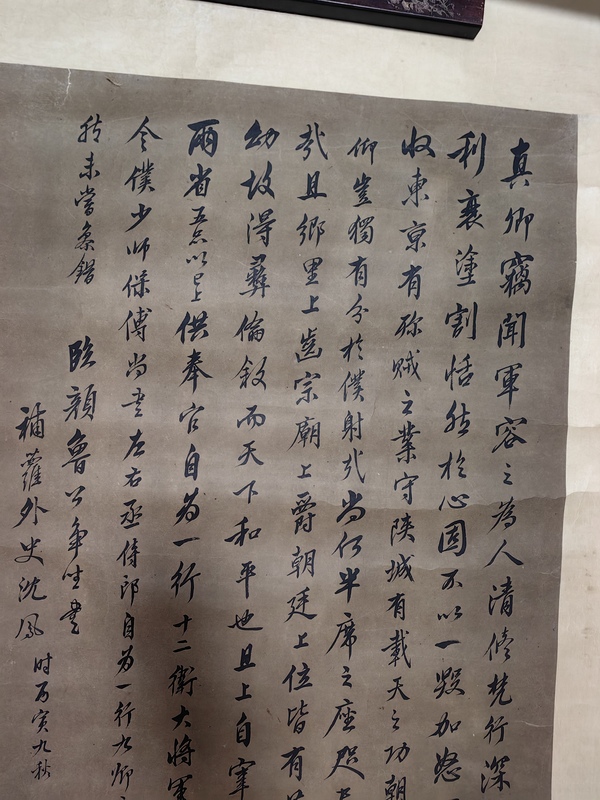 真卿竊聞軍容之為人清修梵行深
利襄塗割恬然於心固不以一毀加怒
收東京有殄賊之業守陝城有載天之功朝
仰豈獨有分於僕射哉尚何半席之座咫
哉且鄉里上齒宗廟上爵朝廷上位皆有
幼故得彝倫敘而天下和平也且上自宰
兩省五品以上供奉官自為一行十二衛大將軍
令僕少師保傅尚書左右丞侍郎自為一行九卿
然未嘗參錯
臨顏魯公爭坐書
補蘿外史沈鳳
時丙寅九秋